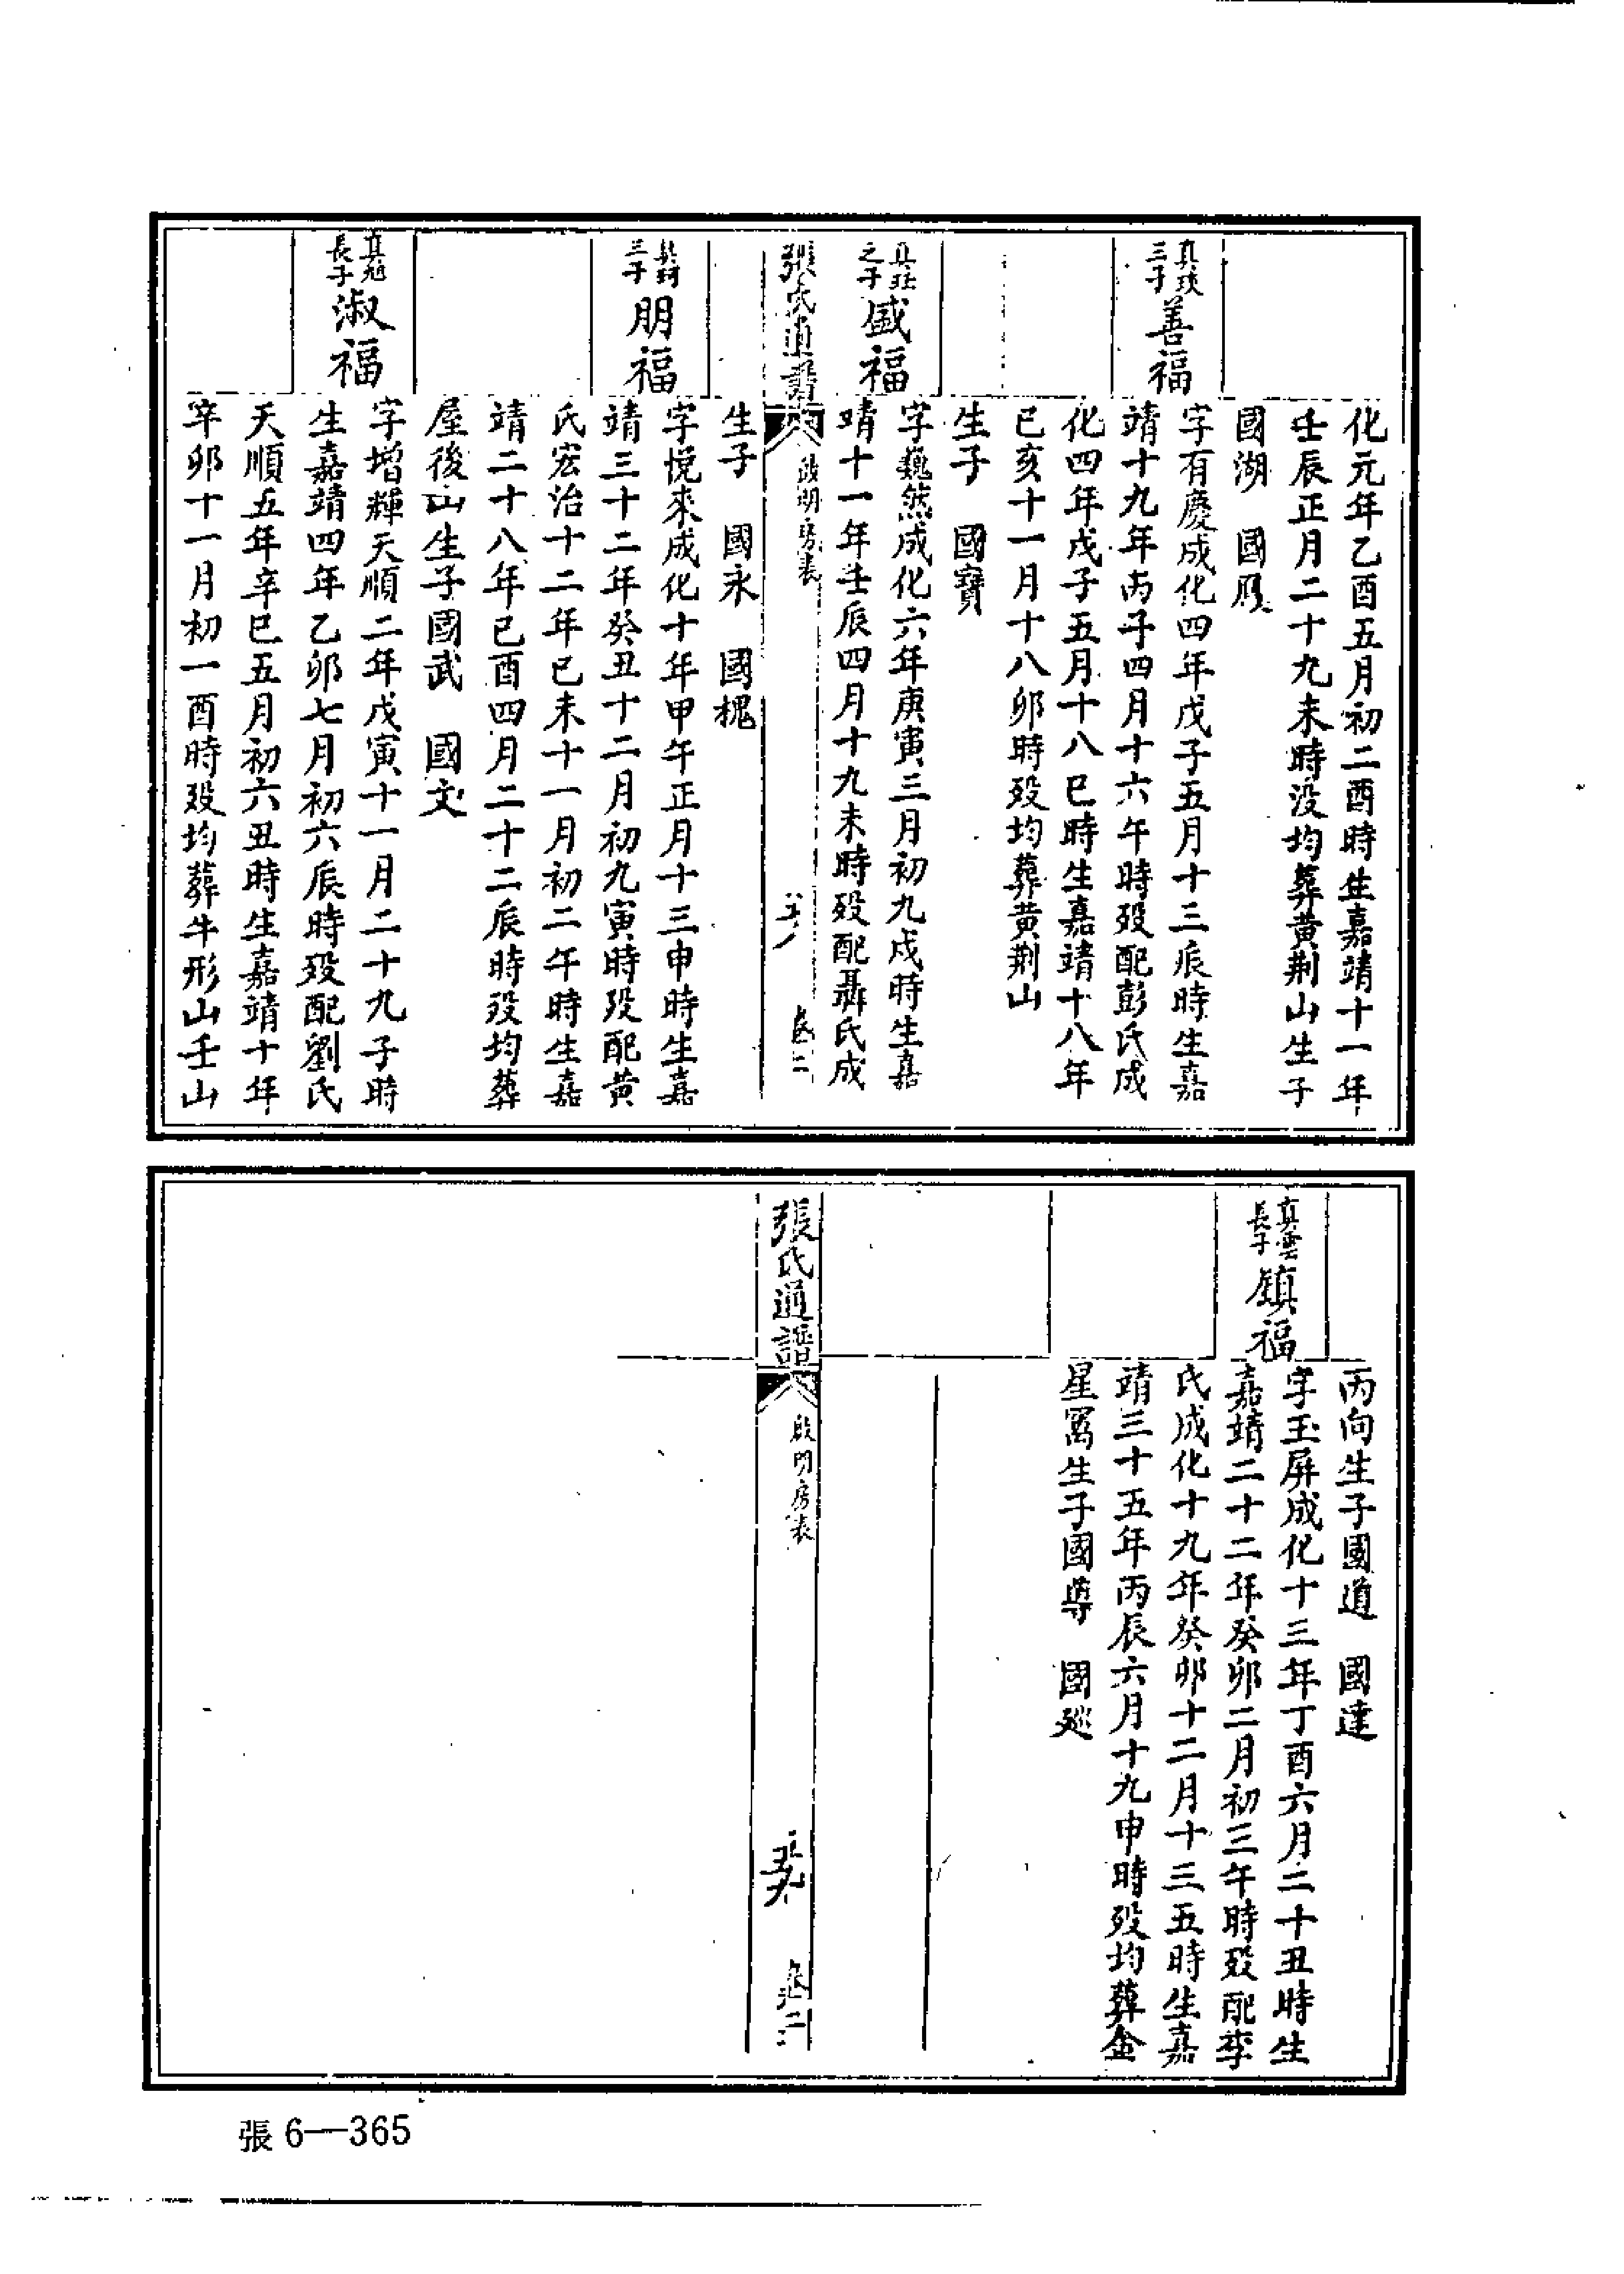 化元年乙酉五月初二酉時生嘉靖十一年
壬辰正月二十九未時没均葬黄荆山生子
國湖　國
三子
善福
字有慶成化四年戊子五月十三辰時生嘉
靖十九年丙子四月十六午時殁配彭氏成
化四年戊子五月十八巳時生嘉靖十八年
已亥十一月十八卯時殁均葬黄荆山
生子　國寶
之子
盛福
字巍然成化六年庚寅三月初九戍時生嘉
靖十一年壬辰四月十九未時殁配聶氏成
張氏通譜
啟明房表
卷二
生子　國永　國槐
三子
朋福
字悦來成化十年甲午正月十三申時生嘉
靖三十二年癸丑十二月初九寅時殁配黄
氏宏治十二年已未十一月初二午時生嘉
靖二十八年已酉四月二十二辰時殁均葬
屋後山生子國武　國文
長子
淑福
字增輝天順二年戊寅十一月二十九子時
生嘉靖四年乙卯七月初六辰時殁配劉氏
天順五年辛巳五月初六丑時生嘉靖十年
辛卯十一月初一酉時殁均葬牛形山壬山
丙向生子國道　國達
真雲
長子
鎮福
字玉屏成化十三年丁酉六月二十丑時生
嘉靖二十二年癸卯二月初三午時殁配李
氏成化十九年癸卯十二月十三五時生嘉
靖三十五年丙辰六月十九申時殁均葬金
星窩生子國導　國
張氏通譜
啟明房表
卷二
張 6—365